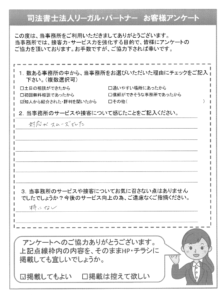 司法書士法人リーガル・パートナー　お客様アンケート
この度は、当事務所をご利用いただきましてありがとうございます。
当事務所では、接客力・サービス力を強化する目的で、皆様にアンケートの
ご協力を頂いております。お手数ですが、ご協力下されば幸いです。
1. 数ある事務所の中から、当事務所をお選びいただいた理由にチェックをご記入
下さい。(複数選択可)
□土日の相談ができたから
□通いやすい場所にあったから
□初回無料相談であったから
□知人から紹介された・評判を聞いた
□その他
2. 当事務所のサービスや接客について感じたことをご記入ください。
3. 当事務所のサービスや接客についてお気に召さない点はありません
でしたでしょうか？今後のサービス向上の為、ご遠慮なくご指摘ください。
特になし
アンケートへのご協力ありがとうございます。
上記点線枠内の内容を、そのまま HP・チラシに
掲載しても宜しいでしょうか。
☑掲載してもよい　□掲載は控えて欲しい